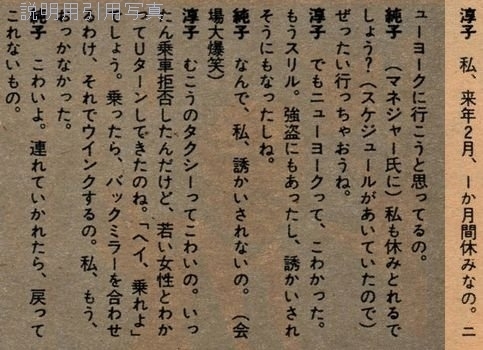 説明用引用写真
淳子　私、来年2月、一か月間休みなの。ニ
ューヨークに行こうと思ってるの。
純子　（マネジャー氏に）私も休みとれるで
しょう？（スケジュールがあいていたので）
ぜったい行っちゃおうね。
淳子　でもニューヨークって、こわかった。
もうスリル。強盗にもあったし、誘かいされ
そうにもなったしね。
純子　なんで、私、誘かいされないの。（会
場大爆笑）
淳子　むこうのタクシーってこわいの。いっ
たん乗車拒否したんだけど、若い女性とわか
ってUターンしてきたのね。「ヘイ、乗れよ」
でしょう。乗ったら、バックミラーを合わせ
るわけ、それでウインクするの。私、もう、
おっかなかった。
純子　こわいよ。連れていかれたら、戻って
これないもの。